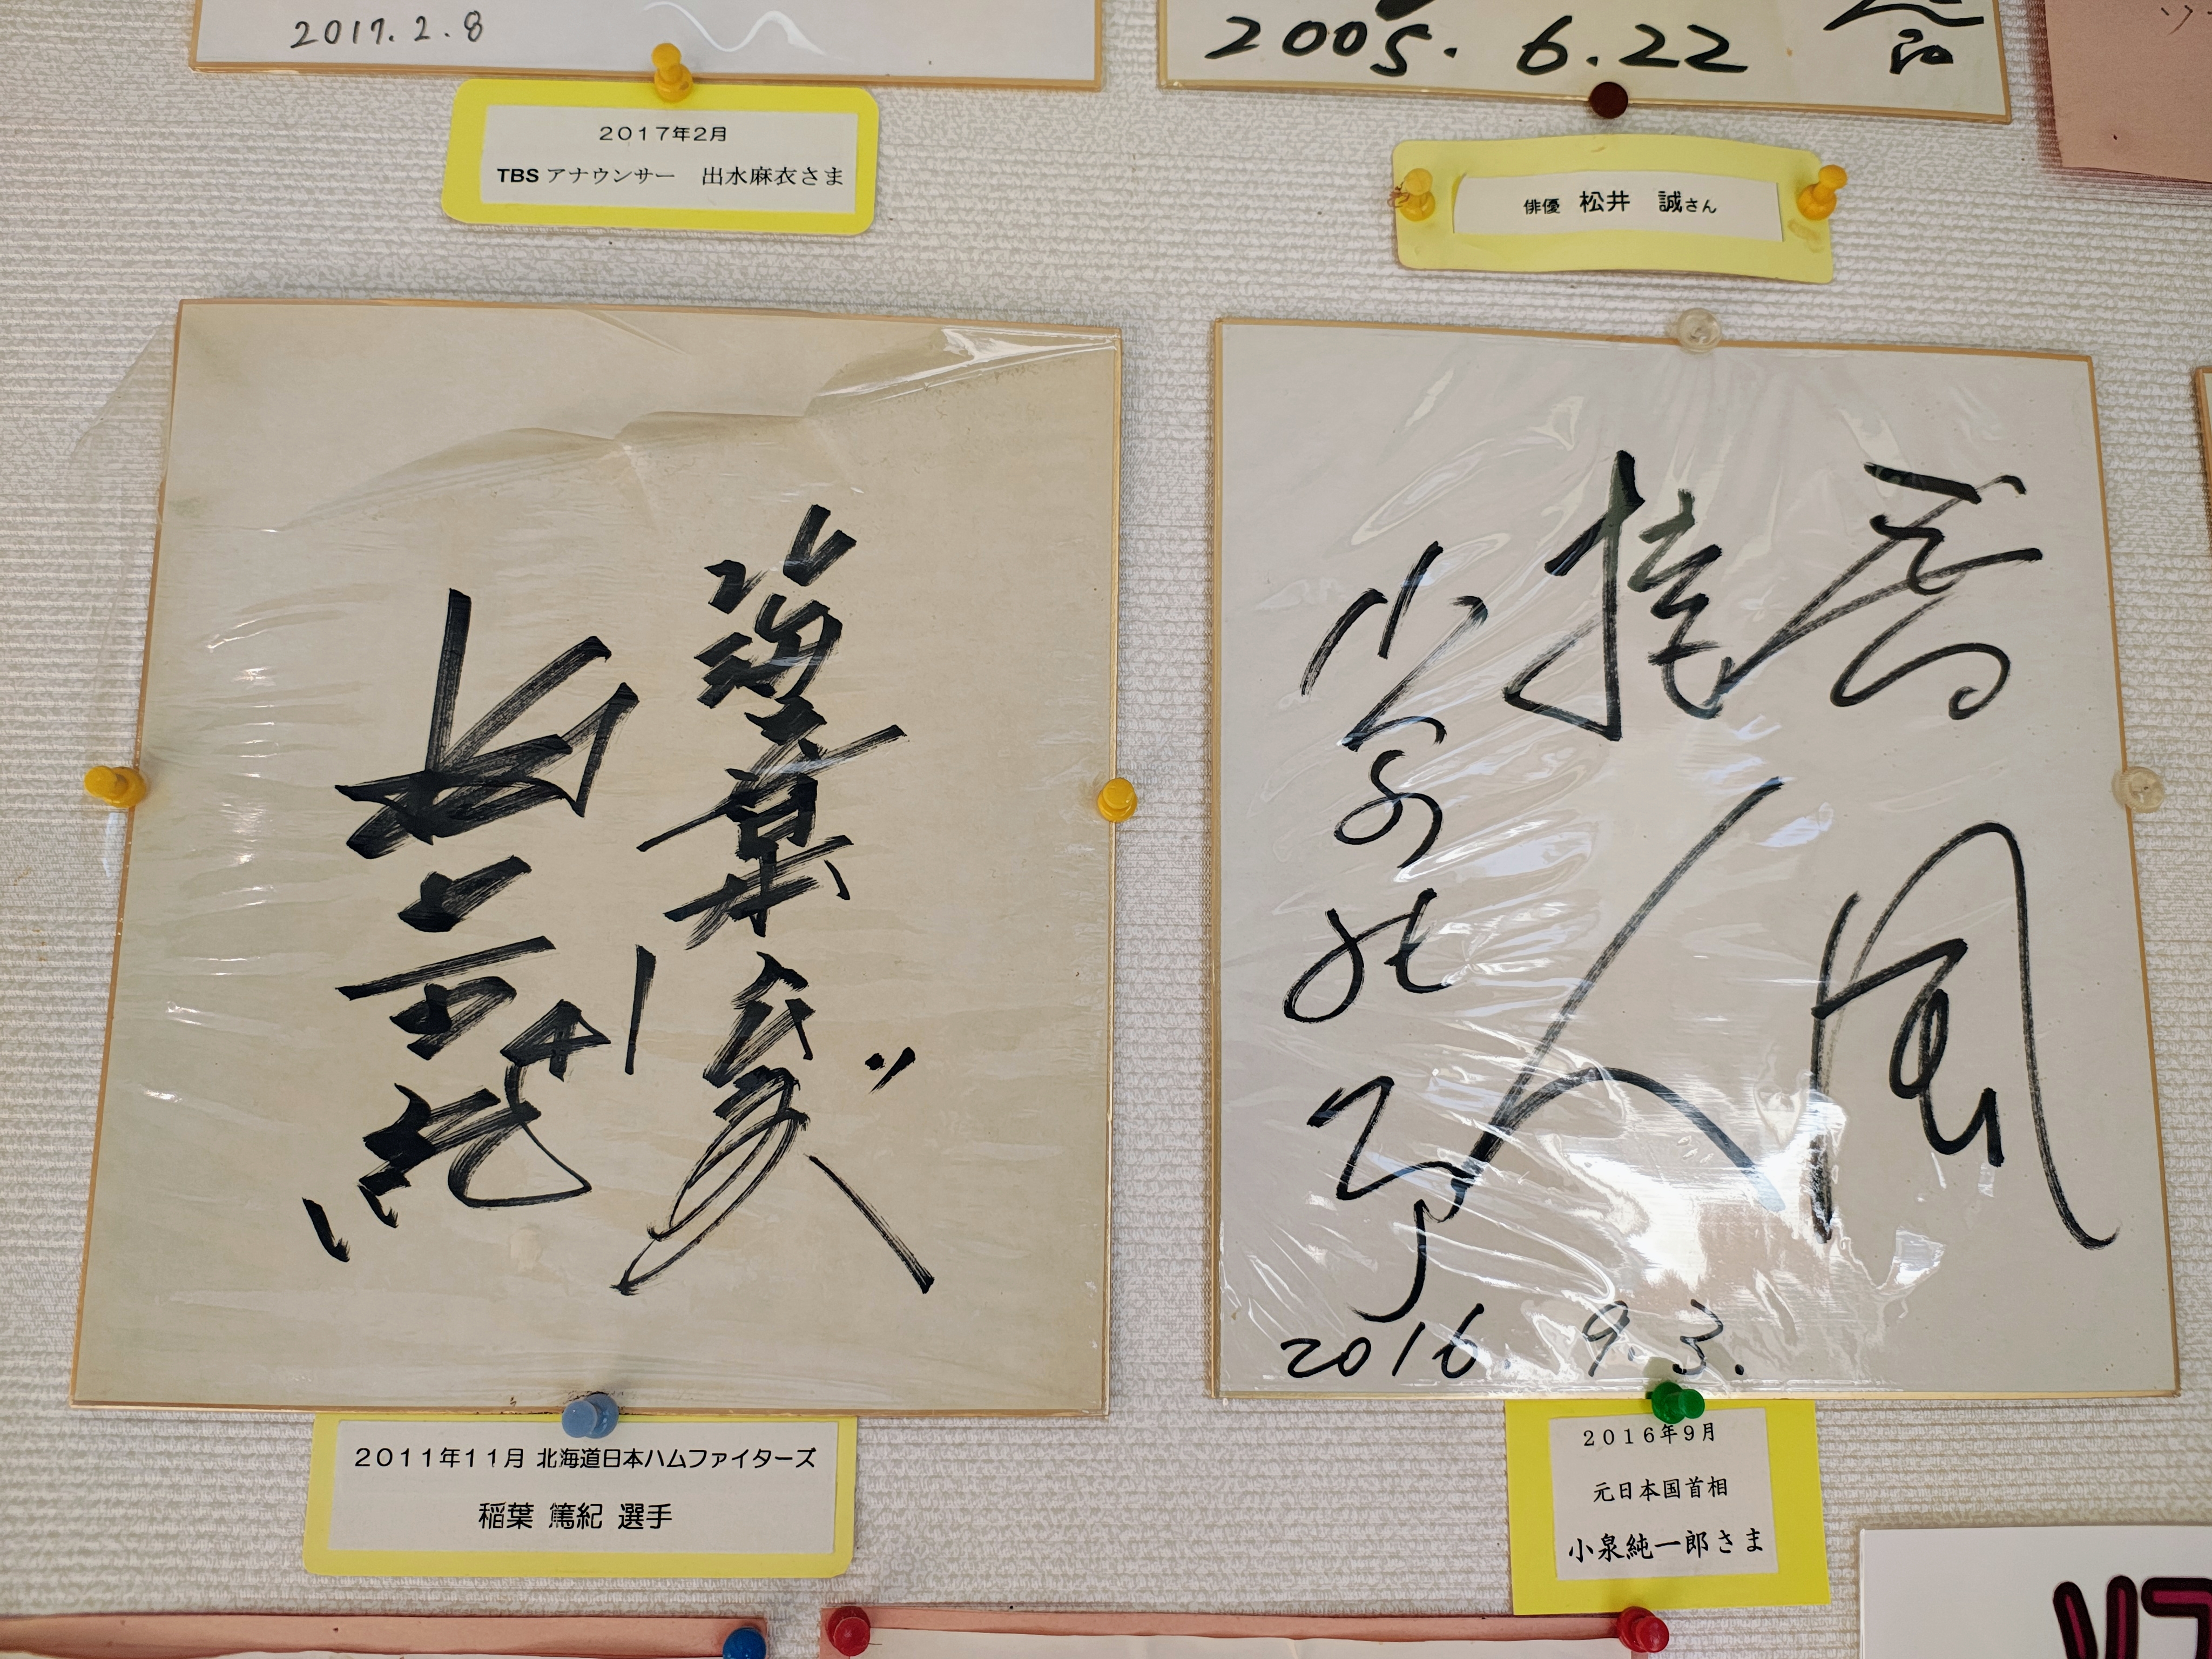 2017.2.8
2005.6.22
2017年2月
TBSアナウンサー 出水麻衣さま
俳優 松井 誠さん
春風
接人
小泉純一郎
2016.9.3.
2011年11月 北海道日本ハムファイターズ
稲葉 篤紀 選手
2016年9月
元日本国首相
小泉純一郎さま